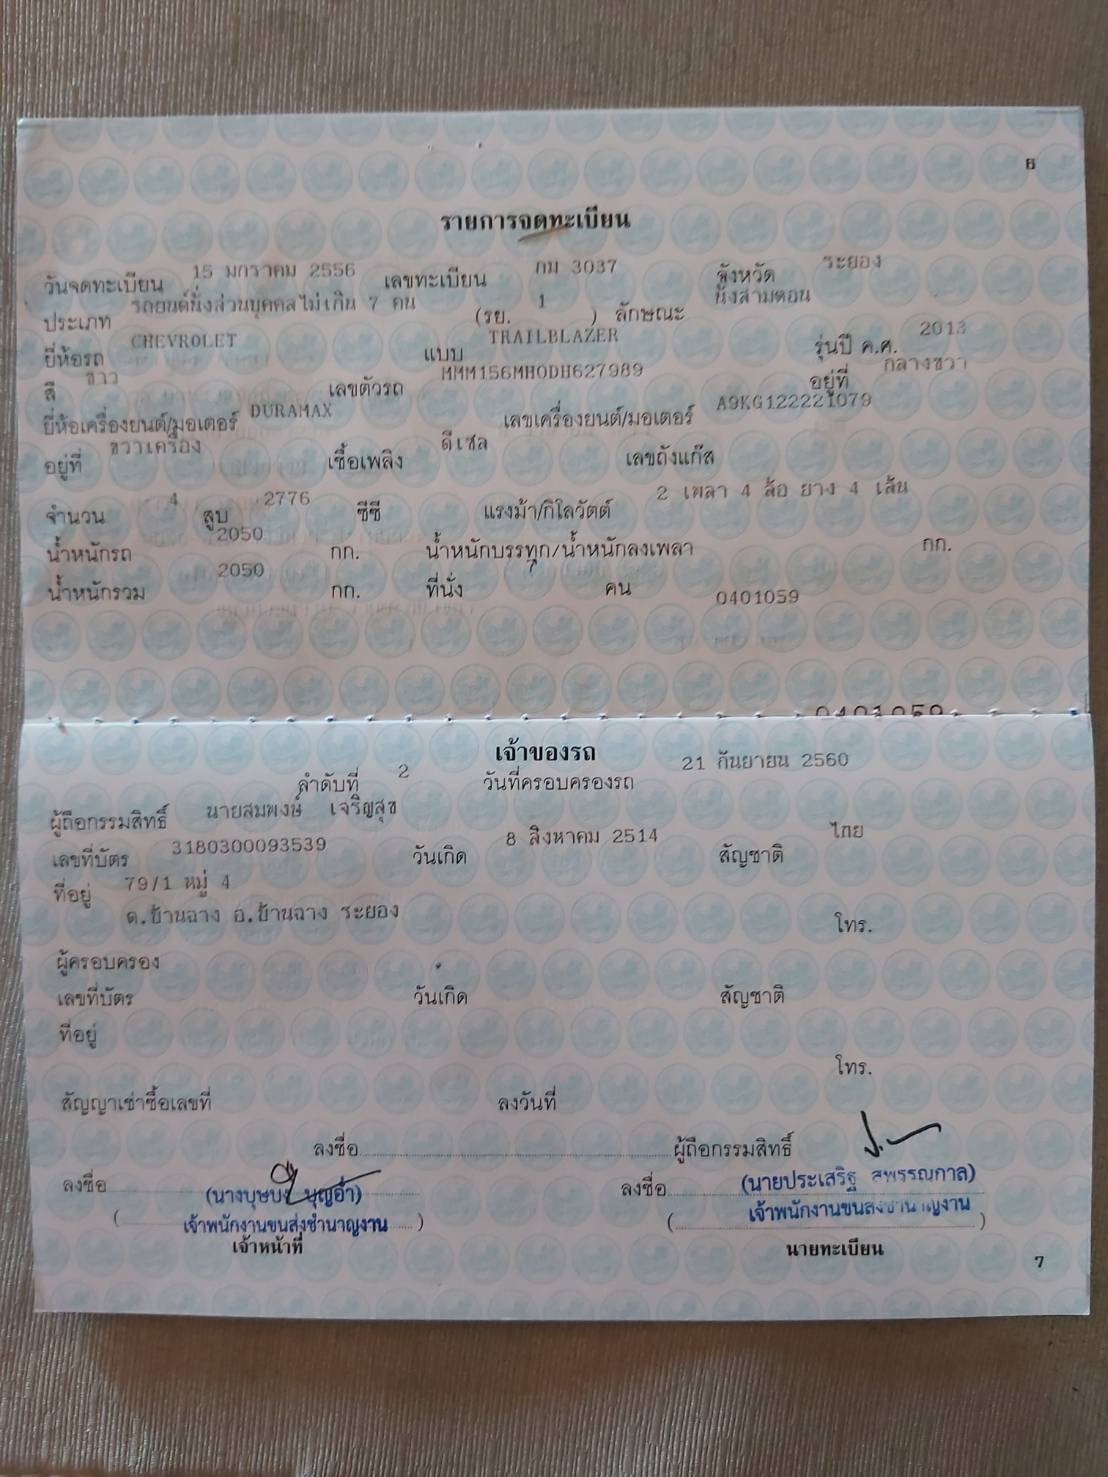 6
รายการจดทะเบียน
วันจดทะเบียน 15 มกราคม 2556 เลขทะเบียน กม 3037 จังหวัด ระยอง
ประเภท รถยนต์นั่งส่วนบุคคลไม่เกิน 7 คน (รย. 1 ) ลักษณะ นั่งสามตอน
ยี่ห้อรถ CHEVROLET แบบ TRAILBLAZER รุ่นปี ค.ศ. 2013
สี ขาว เลขตัวรถ MMM156MH0DH627989 อยู่ที่ กลางขวา
ยี่ห้อเครื่องยนต์/มอเตอร์ DURAMAX เลขเครื่องยนต์/มอเตอร์ A9KG122221079
อยู่ที่ ขวาเครื่อง เชื้อเพลิง ดีเซล เลขถังแก๊ส
จำนวน 4 สูบ 2776 ซีซี แรงม้า/กิโลวัตต์ 2 เพลา 4 ล้อ ยาง 4 เส้น
น้ำหนักรถ 2050 กก. น้ำหนักบรรทุก/น้ำหนักลงเพลา กก.
น้ำหนักรวม 2050 กก. ที่นั่ง 7 คน 0401059
0401059
เจ้าของรถ
ลำดับที่ 2 วันที่ครอบครองรถ 21 กันยายน 2560
ผู้ถือกรรมสิทธิ์ นายสมพงษ์ เจริญสุข
เลขที่บัตร 3180300093539 วันเกิด 8 สิงหาคม 2514 สัญชาติ ไทย
ที่อยู่ 79/1 หมู่ 4
ต.บ้านฉาง อ.บ้านฉาง ระยอง โทร.
ผู้ครอบครอง
เลขที่บัตร วันเกิด สัญชาติ
ที่อยู่
โทร.
สัญญาเช่าซื้อเลขที่ ลงวันที่
ลงชื่อ ผู้ถือกรรมสิทธิ์
ลงชื่อ (นางบุษบง บุญอ่ำ) ลงชื่อ (นายประเสริฐ สุพรรณกาล)
( เจ้าพนักงานขนส่งชำนาญงาน ) ( เจ้าพนักงานขนส่งชำนาญงาน )
เจ้าหน้าที่ นายทะเบียน
7